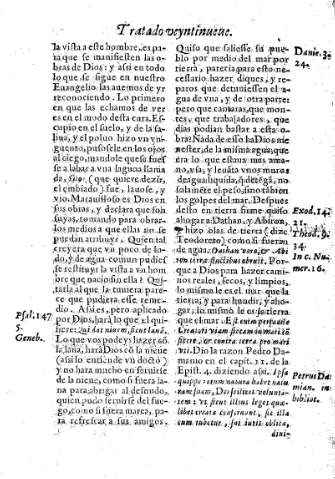 Tratado veyntinueue.
la vista a este hombre, es pa
ra que se manifiesten las o-
bras de Dios: y assi en todo
lo que se sigue en nuestro
Euangelio las auemos de yr
reconociendo. Lo primero
en que las echamos de ver
es en el modo desta cura. Es-
cupio en el suelo, y de la sa-
liua, y el poluo hizo vn vn-
guento, puso sele en los ojos
al ciego, mandole que se fuesse
a labar a vna laguna llama
da, Siloe (que quiere dezir,
el embiado) fue, lauose, y
vio. Marauilloso es Dios en
sus obras, y declara que son
suyas, tomando para ellas
medios a que ellas no se
puedan atribuyr. Quien tal
creyera que vn poco de lo-
do, y de agua comun pudies
se restituyr la vista a vn hom
bre que nacio sin ella? Qui-
tarla al que la tuuiera pare-
ce que pudiera esse reme-
dio. Assi es, pero aplicado
por Dios, hará lo que el qui
siere: Qui dat niuem, sicut lanã.
Lo que vos podeys hazer cõ
la lana, hará Dios cõ la nieue
(assi lo entiende vn docto)
y no hara mucho en seruirse
de la nieue, como si fuera la-
na para abrigar al desnudo,
quien pudo seruirse del fue-
go, como si fuera marea, pa-
ra refrescar a sus amigos.
Psal. 147
5.
Geneb.
Quiso que saliesse su pue-
blo por medio del mar por
tierra, parecia para esto ne-
cessario hazer diques, y re-
paros que detuuiessen el a-
gua de vna, y de otra parte:
pero que camaras, que mon-
tes, que trabajadores, que
dias podian bastar a esta o-
bra? Nada de esso ha Dios me
nester, de la misma agua, que
era lo que estaua mas ama-
no, vsa, y leuãta vnos muros
de agua
so la mete el peso, sino tambien
los golpes del mar. Despues
desto en tierra firme quiso
ahogar a Datan, y Abiron,
y hizo olas de tierra (dize
Teodoreto) como si fueran
de agua:
Por-
que a Dios para hazer cami
nos reales, secos, y limpios,
lo mismo le es el mar que la
tierra; y para hundir, y aho-
gar, lo mismo le es la tierra
que el mar:
Creatori viam siccam in mari fa
cere, & contra terra pro mari
vti. Dio la razon Pedro Da-
miano en el cap. 11. de la
Epist. 4. diziendo assi. Ipsa
quippe rerum natura habet natu
ram suam, Dei scilicet volunta-
tem: vt sicut illius leges quæ-
libet creata conseruant, sic illa
cum iubetur, sui iuris oblita,
diui-
Danie. 3.
24.
Exod. 14.
21.
Theod. q.
34.
In c. Nu.
mer. 16.
Petrus Da
mian. in
bibliot.